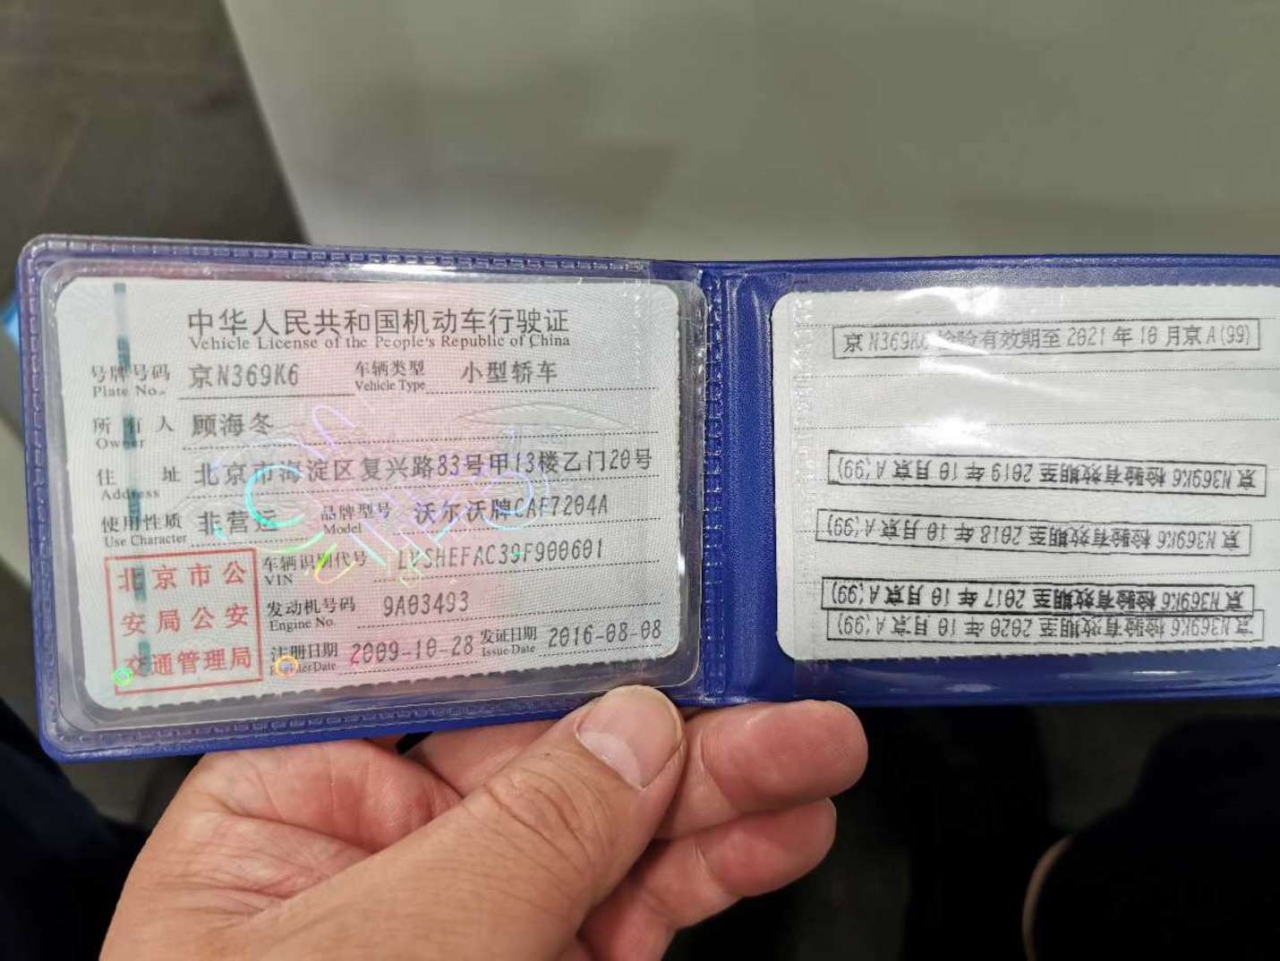 中华人民共和国机动车行驶证
Vehicle License of the People's Republic of China
号牌号码 京N369K6 车辆类型 小型轿车
Plate No. Vehicle Type
所有人 顾海冬
Owner
住址 北京市海淀区复兴路83号甲13楼乙门20号
Address
使用性质 非营运 品牌型号 沃尔沃牌CAF7204A
Use Character Model
车辆识别代号 LVSHEFAC39F900601
VIN
发动机号码 9A03493
Engine No.
注册日期 2009-10-28 发证日期 2016-08-08
Issue Date
北京市公
安局公安
交通管理局
京N369K6 检验有效期至2021年10月京A(99)
京N369K6 检验有效期至2019年10月京A(99)
京N369K6 检验有效期至2018年10月京A(99)
京N369K6 检验有效期至2017年10月京A(99)
京N369K6 检验有效期至2020年10月京A(99)